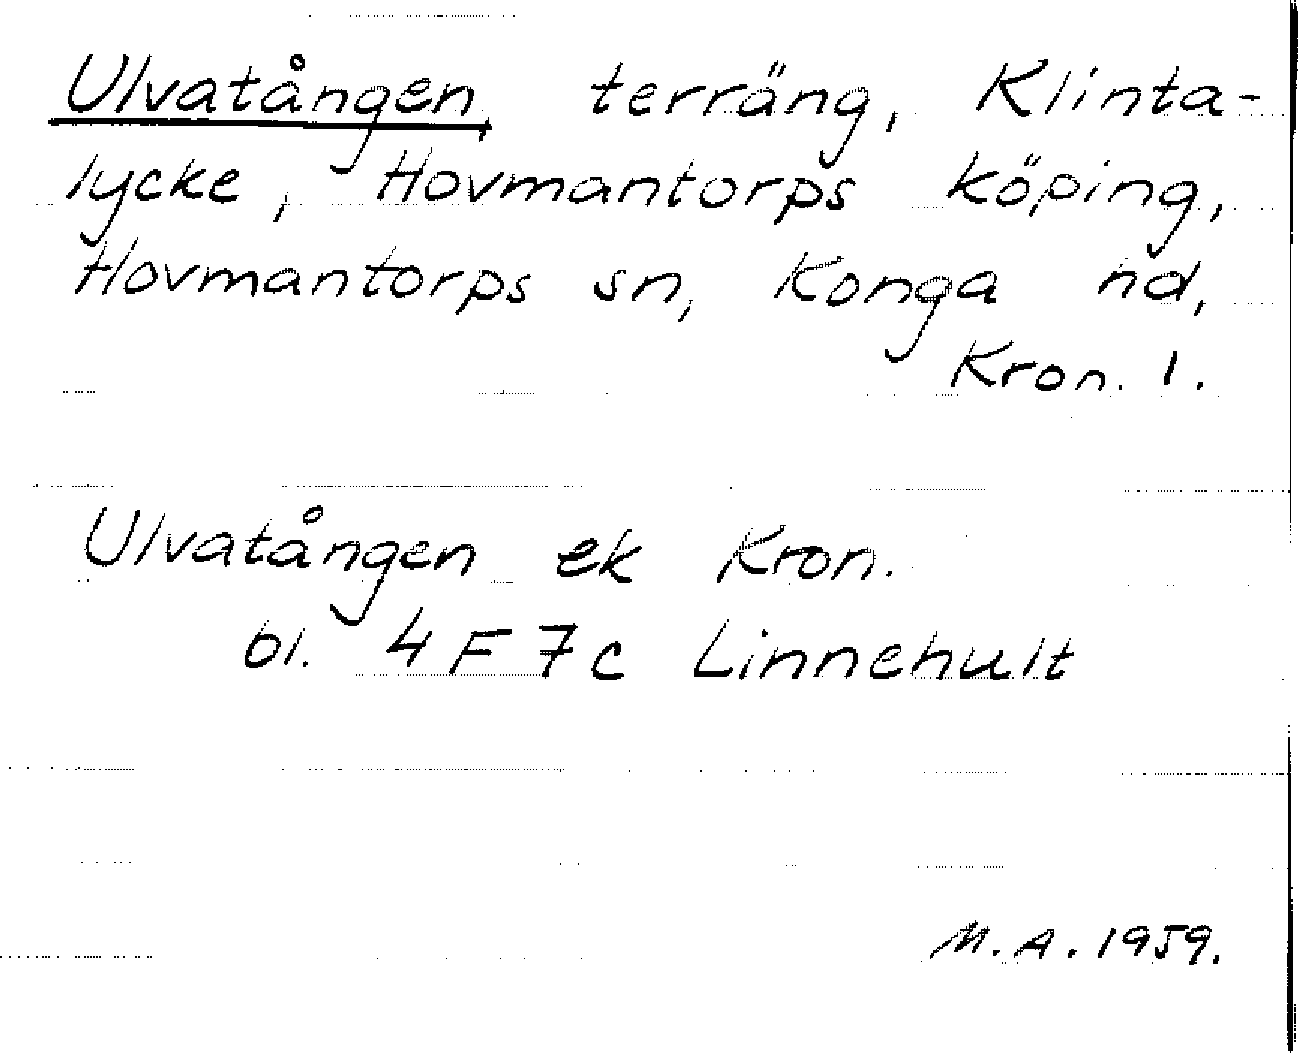 Ulvatången, terräng, Klinta-
lycke, Hovmantorps köping,
Hovmantorps sn, Konga hd,
Kron. l.
Ulvatången ek Kron.
bl. 4 F 7 c Linnehult
M.A. 1959.